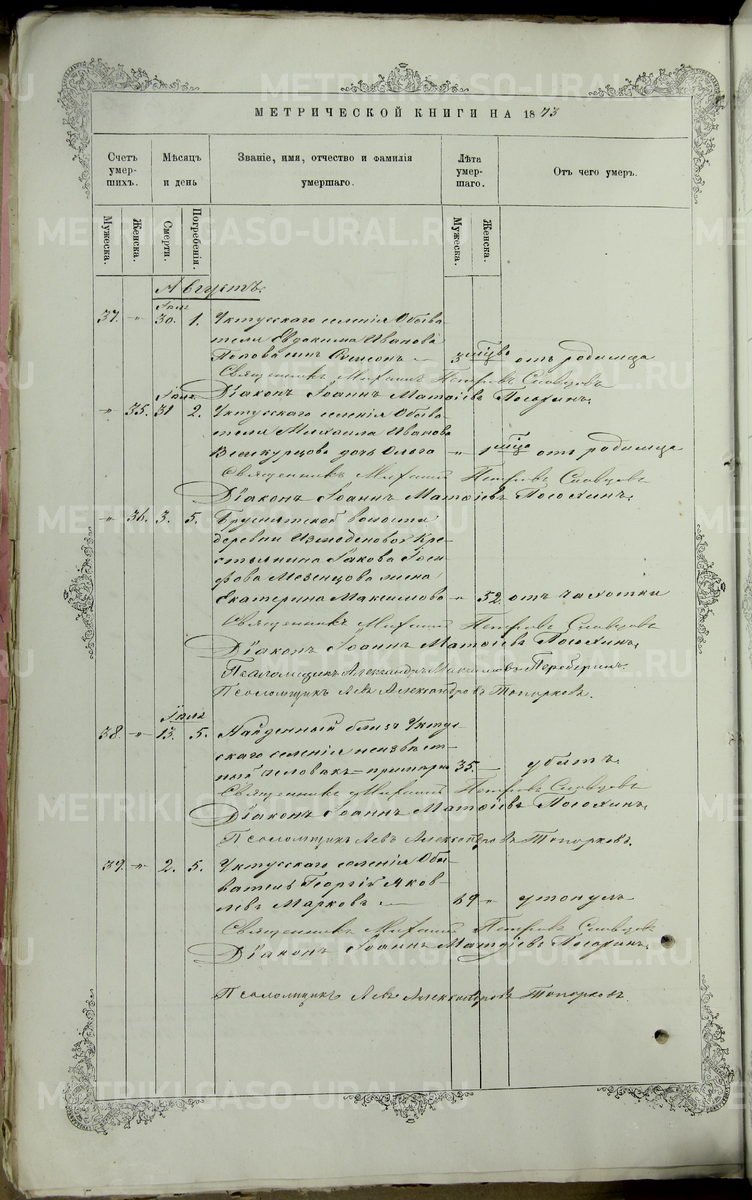 МЕТРИЧЕСКОЙ КНИГИ НА 1873
Счетъ умер- шихъ.
Мѣсяцъ и день
Званіе, имя, отчество и фамилія умершаго.
Лѣта умер- шаго.
Отъ чего умеръ.
Мужеска. Женска. Смерти. Погребенія. Мужеска. Женска.
Августъ.
Іюля
37. " 30. 1. Уктусскаго селенія Обыва-
теля Евдокима Иванова
Попова сынъ Симеонъ — 3 мѣсца отъ родимца
Священникъ Михаилъ Петровъ Словцовъ
Діаконъ Іоаннъ Матѳіевъ Посохинъ.
Іюля
" 35. 31 2. Уктусскаго селенія Обыва-
теля Михаила Иванова
дочь Ольга " 1 мѣсца отъ родимца
Священникъ Михаилъ Петровъ Словцовъ
Діаконъ Іоаннъ Матѳіевъ Посохинъ.
" 36. 3. 5. Бруснятской волости
деревни Измоденовой Кре-
стьянина Іакова Іоси-
фова Мезенцова жена
Екатерина Максимова " 52. отъ чахотки
Священникъ Михаилъ Петровъ Словцовъ
Діаконъ Іоаннъ Матѳіевъ Посохинъ.
Псаломщикъ Александръ Максимовъ
Псаломщикъ Левъ Александровъ Топорковъ.
Іюля
38 " 13. 5. Найденный близъ Укту-
скаго селенія неизвѣст-
ный человѣкъ = примѣрно 35. — убитъ.
Священникъ Михаилъ Петровъ Словцовъ
Діаконъ Іоаннъ Матѳіевъ Посохинъ.
Псаломщикъ Левъ Александровъ Топорковъ.
39. " 2. 5. Уктусскаго селенія Обы-
ватель Георгій Яков-
левъ Марковъ — 69 " утонулъ
Священникъ Михаилъ Петровъ Словцовъ
Діаконъ Іоаннъ Матѳіевъ Посохинъ.
Псаломщикъ Левъ Александровъ Топорковъ.
METRIKI.GASO-URAL.RU